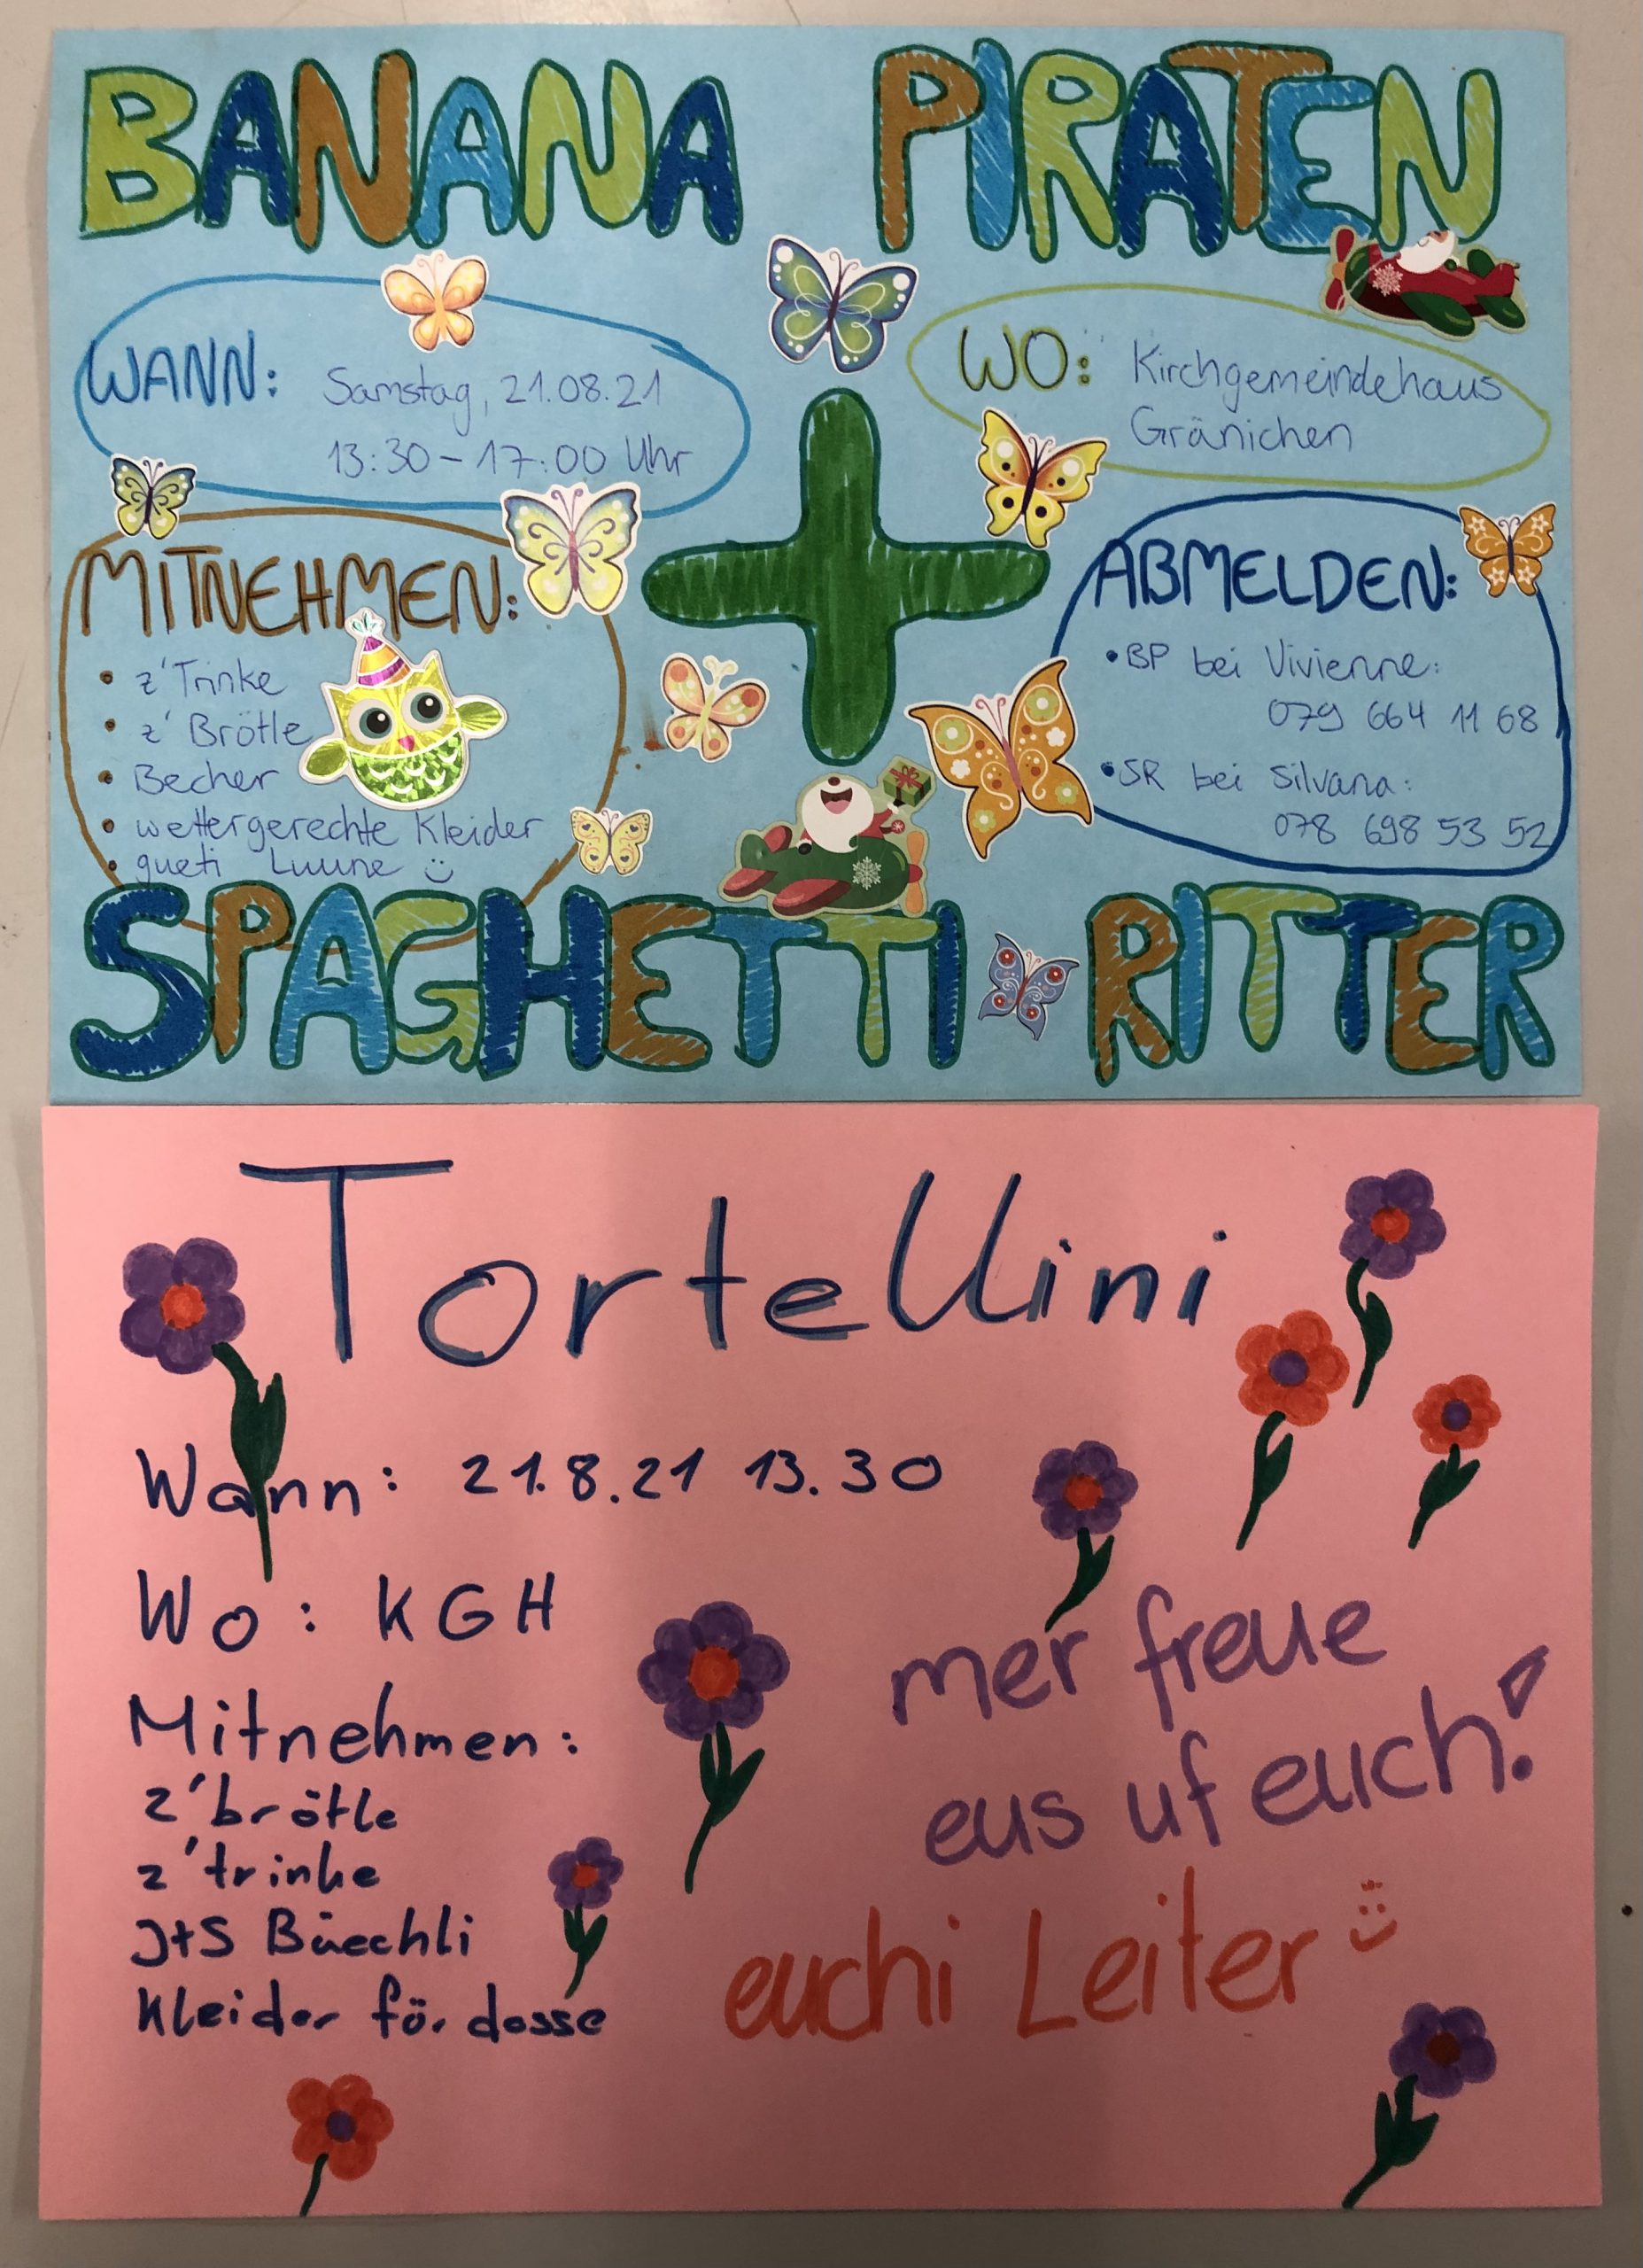 BANANA PIRATEN
WANN: Samstag, 21.08.21
13:30 – 17:00 Uhr
WO: Kirchgemeindehaus
Gränichen
MITNEHMEN:
• z'Trinke
• z'Brötle
• Becher
• wettergerechte Kleider
• gueti Luune
ABMELDEN:
• BP bei Vivienne:
079 664 11 68
• SR bei Silvana:
078 698 53 52
SPAGHETTI RITTER
Tortellini
Wann: 21.8.21 13.30
Wo: KGH
Mitnehmen:
z'brötle
z'trinke
J+S Büechli
Kleider för dosse
mer freue
eus uf euch!
euchi Leiter